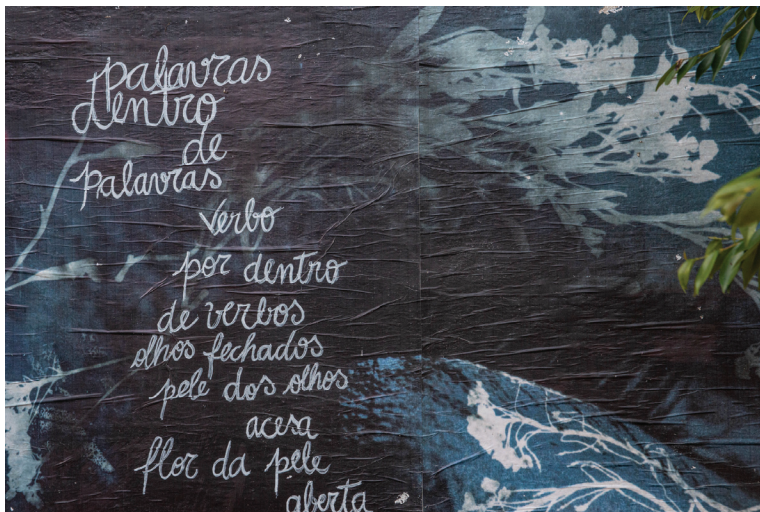 palavras
dentro
de
palavras
verbo
por dentro
de verbos
olhos fechados
pele dos olhos
acesa
flor da pele
aberta